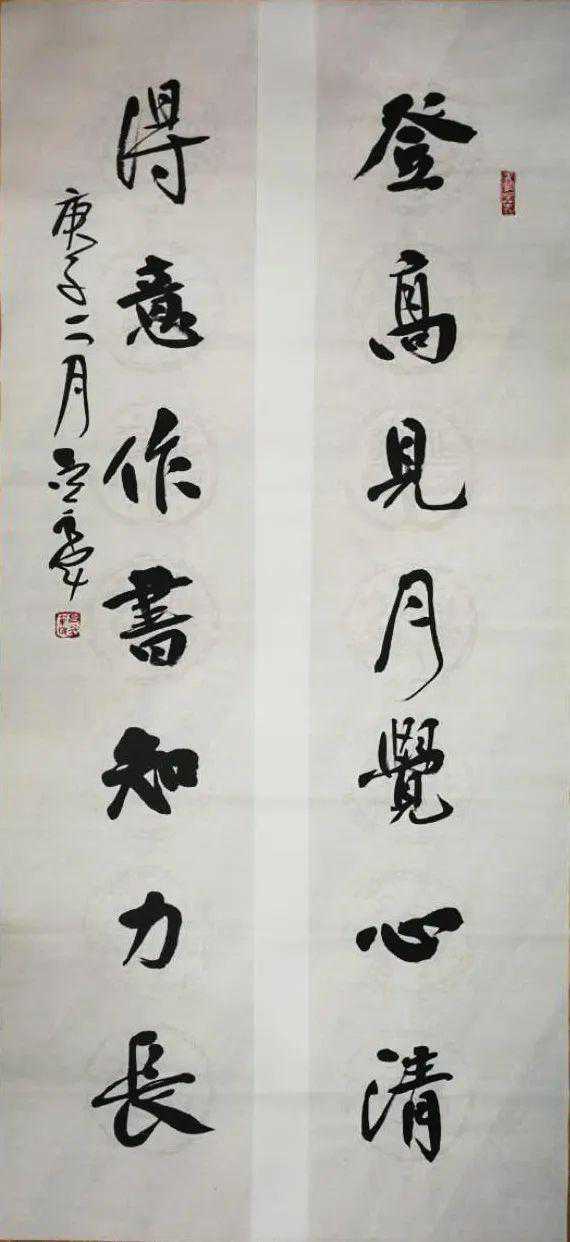 登高見月覺心清
得意作書知力長
庚子二月